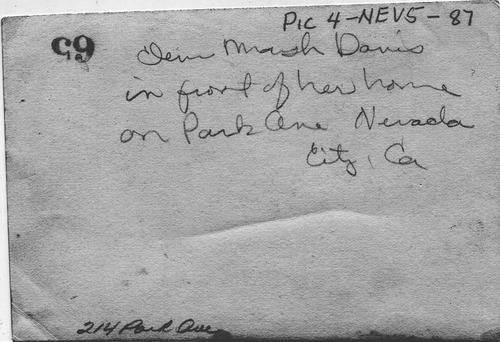 Pic 4-NEV5-87
65
Marsh Davis
in front of her home
on Park Ave Nevada
City, Ca
214 Park Ave